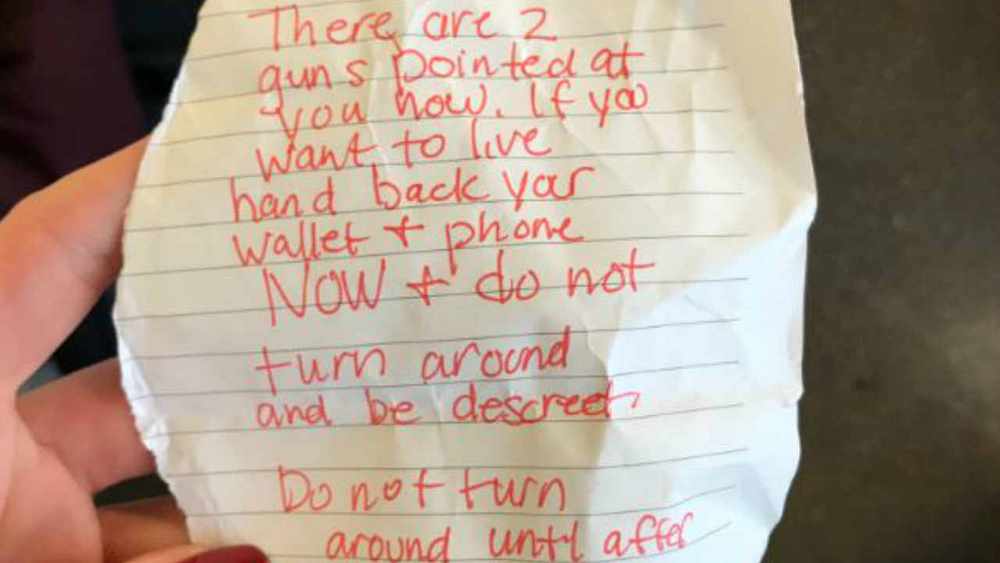 There are 2
guns pointed at
you now. If you
want to live
hand back your
wallet + phone
NOW + do not
turn around
and be descreet.
Do not turn
around until after